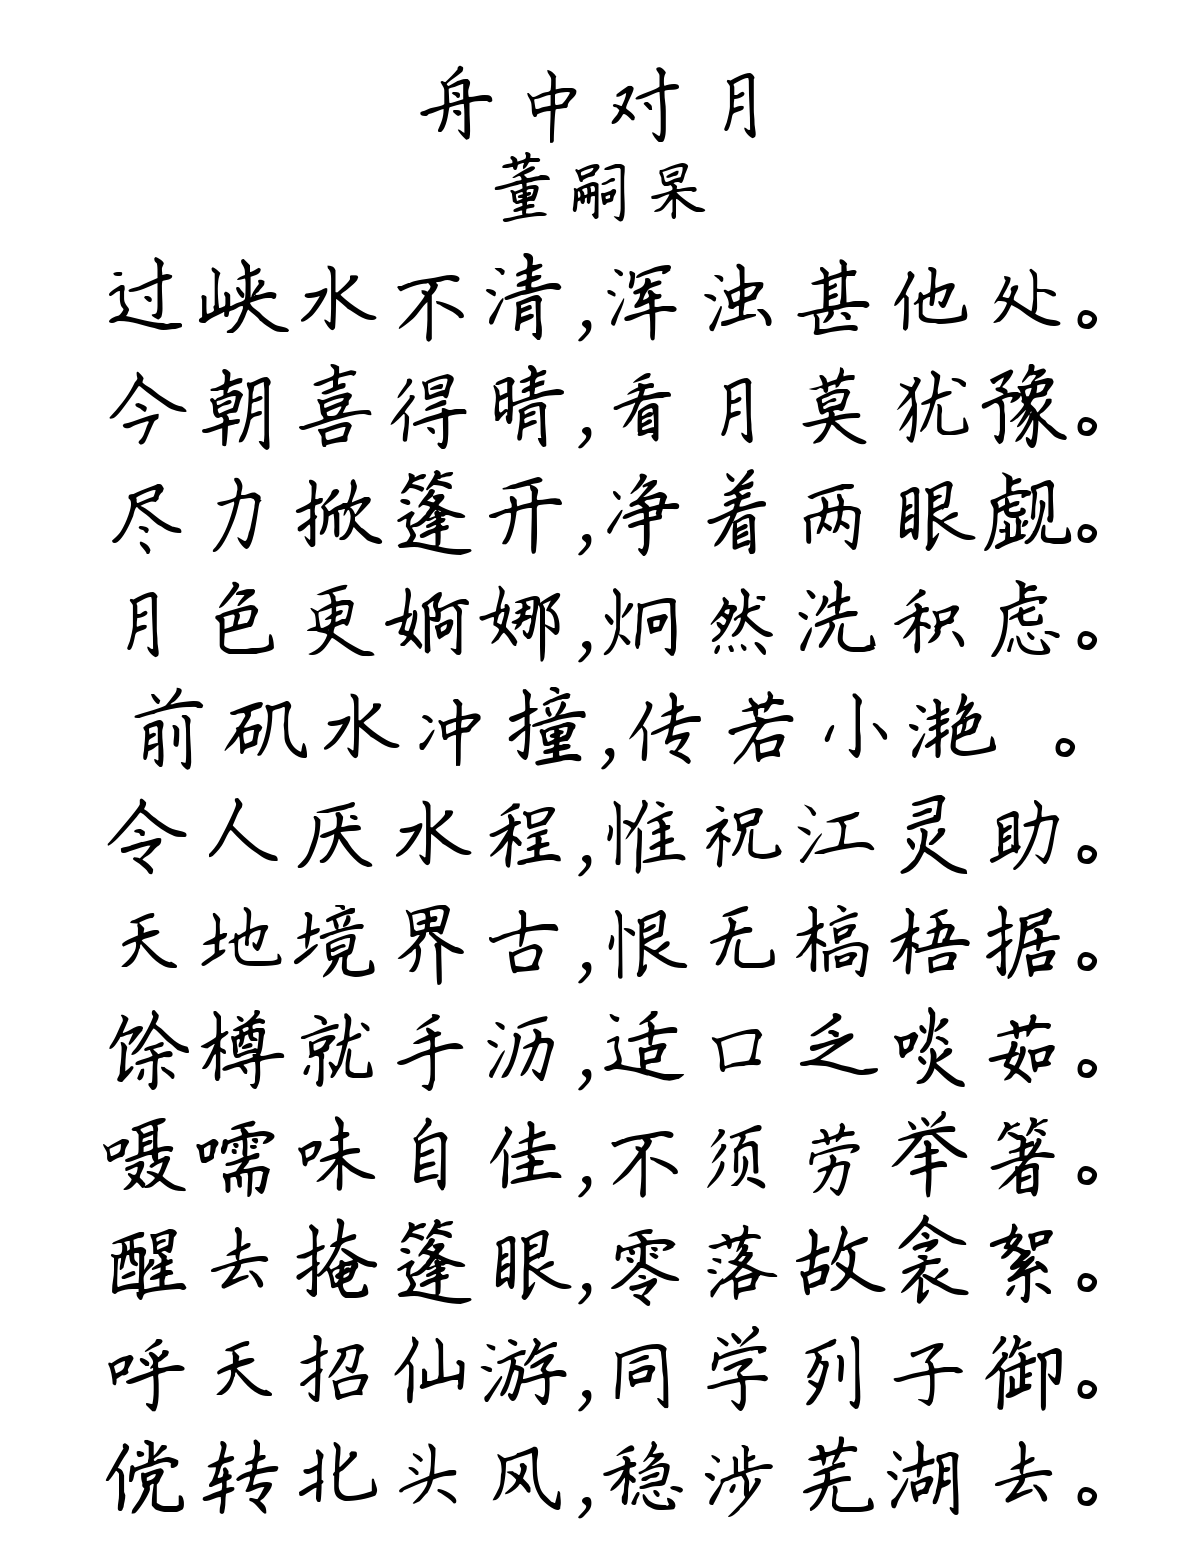 舟中对月
董嗣杲
过峡水不清,浑浊甚他处。
今朝喜得晴,看月莫犹豫。
尽力掀篷开,净着两眼觑。
月色更婀娜,炯然洗积虑。
前矶水冲撞,传若小滟 。
令人厌水程,惟祝江灵助。
天地境界古,恨无槁梧据。
馀樽就手沥,适口乏啖茹。
嗫嚅味自佳,不须劳举箸。
醒去掩篷眠,零落故衾絮。
呼天招仙游,同学列子御。
傥转北头风,稳涉芜湖去。